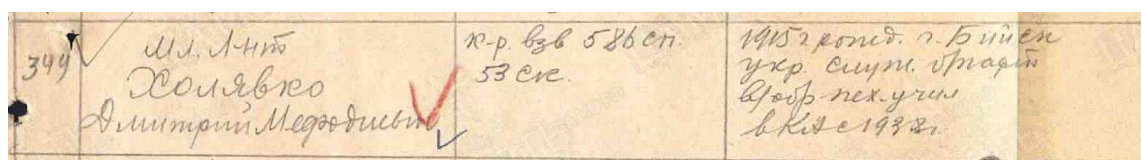 344
Мл. Лнт
Холявко
Дмитрий Мефодиевич
к-р. взв 586 сп.
53 ск.
1915 г рожд. г. Бийск
укр. служ. б/парт
в/обр пех. учил
в КА с 193 г.